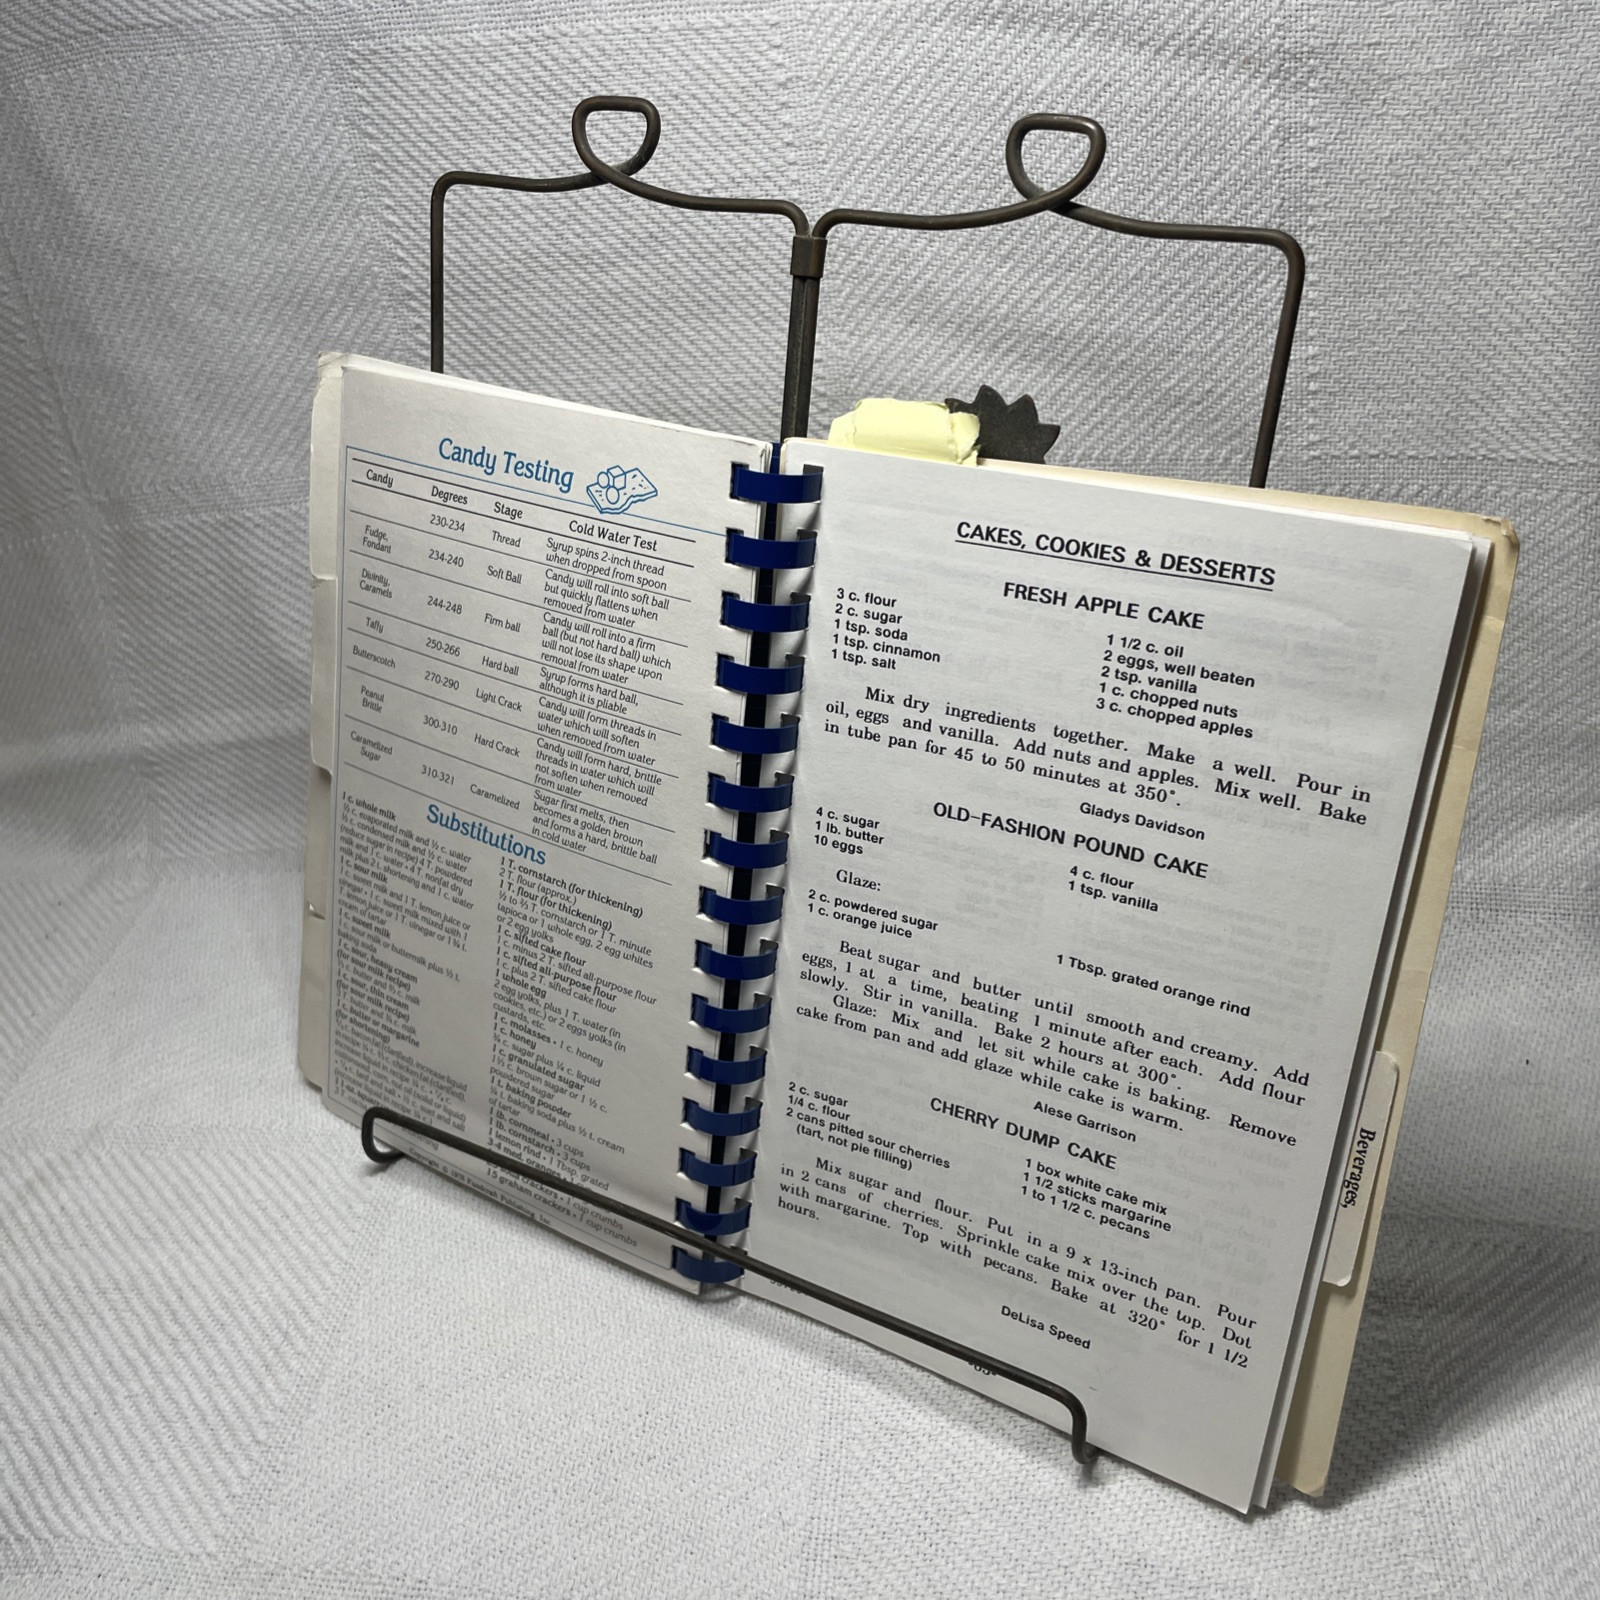 Candy Testing
Candy Degrees Stage Cold Water Test
230-234 Thread Syrup spins 2-inch thread
when dropped from spoon
Fudge,
Fondant 234-240 Soft Ball Candy will roll into soft ball
but quickly flattens when
removed from water
Divinity,
Caramels 244-248 Firm ball Candy will roll into a firm
ball (but not hard ball) which
will not lose its shape upon
removal from water
Taffy 250-266 Hard ball Syrup forms hard ball,
although it is pliable
Butterscotch 270-290 Light Crack Candy will form threads in
water which will soften
when removed from water
Peanut
Brittle 300-310 Hard Crack Candy will form hard, brittle
threads in water which will
not soften when removed
from water
Caramelized
Sugar 310-321 Caramelized Sugar first melts, then
becomes a golden brown
and forms a hard, brittle ball
in cold water
Substitutions
1 c. whole milk
½ c. evaporated milk and ½ c. water
½ c. condensed milk and ½ c. water
(reduce sugar in recipe) 4 T. powdered
milk and 1 c. water • 4 T. nonfat dry
milk plus 2 t. shortening and 1 c. water
1 c. sour milk
1 c. sweet milk and 1 T. lemon juice or
vinegar • 1 c. sweet milk mixed with 1
T. lemon juice or 1 T. vinegar or 1¾ t.
cream of tartar
1 c. sweet milk
1 c. sour milk or buttermilk plus ½ t.
baking soda
1 c. sour, heavy cream
(for sour milk recipe)
1 c. sour, thin cream
(for sour milk recipe)
1 c. butter or margarine
(for shortening)
1 T. cornstarch (for thickening)
2 T. flour (approx.)
1 T. flour (for thickening)
½ to ⅔ T. cornstarch or 1 T. minute
tapioca or 1 whole egg, 2 egg whites
or 2 egg yolks
1 c. sifted cake flour
1 c. minus 2 T. sifted all-purpose flour
1 c. sifted all-purpose flour
1 c. plus 2 T. sifted cake flour
1 whole egg
2 egg yolks, plus 1 T. water (in
cookies, etc.) or 2 eggs yolks (in
custards, etc.
1 c. molasses • 1 c. honey
1 c. honey
¾ c. sugar plus ¼ c. liquid
1 c. granulated sugar
1⅓ c. brown sugar or 1 ½ c.
powdered sugar
1 t. baking powder
¼ t. baking soda plus ½ t. cream
of tartar
1 lb. cornmeal • 3 cups
1 lb. cornstarch • 3 cups
1 lemon rind • 1 Tbsp. grated
3-4 med. oranges • 1
crackers • 1 cup crumbs
15 graham crackers • 1 cup crumbs
Copyright © 1979 Fundcraft Publishing, Inc.
CAKES, COOKIES & DESSERTS
FRESH APPLE CAKE
3 c. flour
2 c. sugar
1 tsp. soda
1 tsp. cinnamon
1 tsp. salt
1 1/2 c. oil
2 eggs, well beaten
2 tsp. vanilla
1 c. chopped nuts
3 c. chopped apples
Mix dry ingredients together. Make a well. Pour in
oil, eggs and vanilla. Add nuts and apples. Mix well. Bake
in tube pan for 45 to 50 minutes at 350°.
Gladys Davidson
OLD-FASHION POUND CAKE
4 c. sugar
1 lb. butter
10 eggs
4 c. flour
1 tsp. vanilla
Glaze:
2 c. powdered sugar
1 c. orange juice
1 Tbsp. grated orange rind
Beat sugar and butter until smooth and creamy. Add
eggs, 1 at a time, beating 1 minute after each. Add flour
slowly. Stir in vanilla. Bake 2 hours at 300°.
Glaze: Mix and let sit while cake is baking. Remove
cake from pan and add glaze while cake is warm.
Alese Garrison
CHERRY DUMP CAKE
2 c. sugar
1/4 c. flour
2 cans pitted sour cherries
(tart, not pie filling)
1 box white cake mix
1 1/2 sticks margarine
1 to 1 1/2 c. pecans
Mix sugar and flour. Put in a 9 x 13-inch pan. Pour
in 2 cans of cherries. Sprinkle cake mix over the top. Dot
with margarine. Top with pecans. Bake at 320° for 1 1/2
hours.
DeLisa Speed
Beverages,